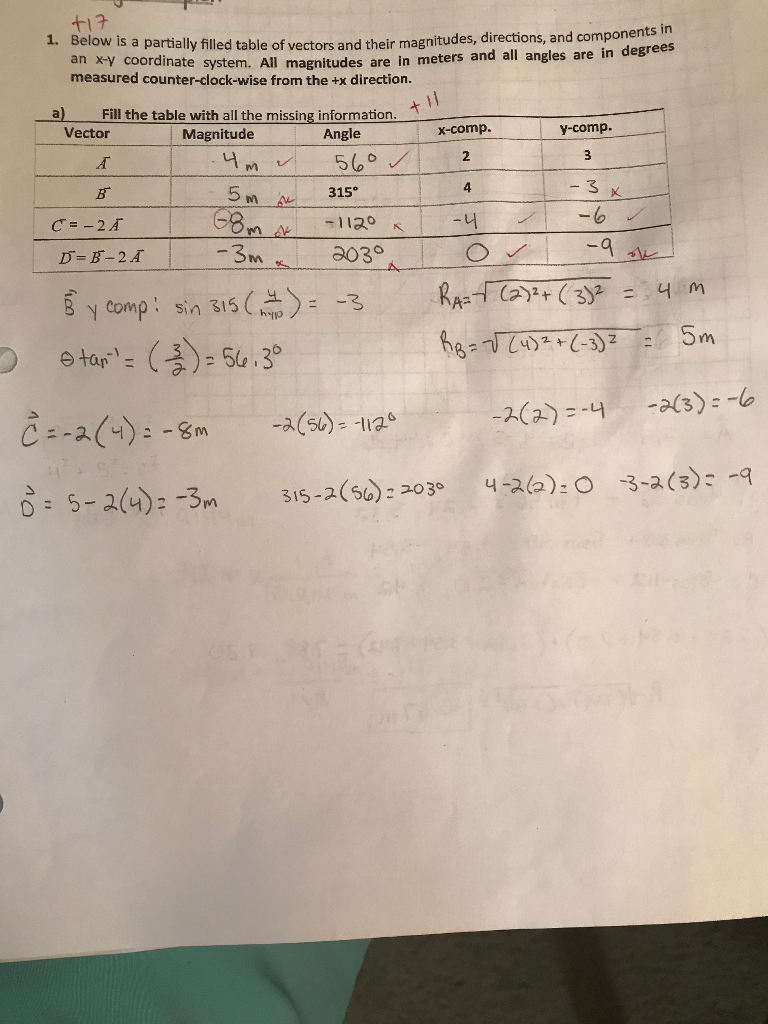 +17
1. Below is a partially filled table of vectors and their magnitudes, directions, and components in
an x-y coordinate system. All magnitudes are in meters and all angles are in degrees
measured counter-clock-wise from the +x direction.
a) Fill the table with all the missing information. +11
Vector Magnitude Angle x-comp. y-comp.
A 4 m ✓ 56° ✓ 2 3
B 5 m ok 315° 4 -3 x
C = -2A -8m ok -112° x -4 ✓ -6 ✓
D = B-2A -3m x 203° x 0 ✓ -9 ok
B⃗ y comp: sin 315 (4/hyp) = -3
R_A = √(2)²+(3)² = 4 m
θ tan⁻¹ = (3/2) = 56.3°
R_B = √(4)²+(-3)² = 5m
C⃗ = -2(4) = -8m -2(56) = -112° -2(2) = -4 -2(3) = -6
D⃗ = 5-2(4) = -3m 315-2(56) = 203° 4-2(2) = 0 -3-2(3) = -9